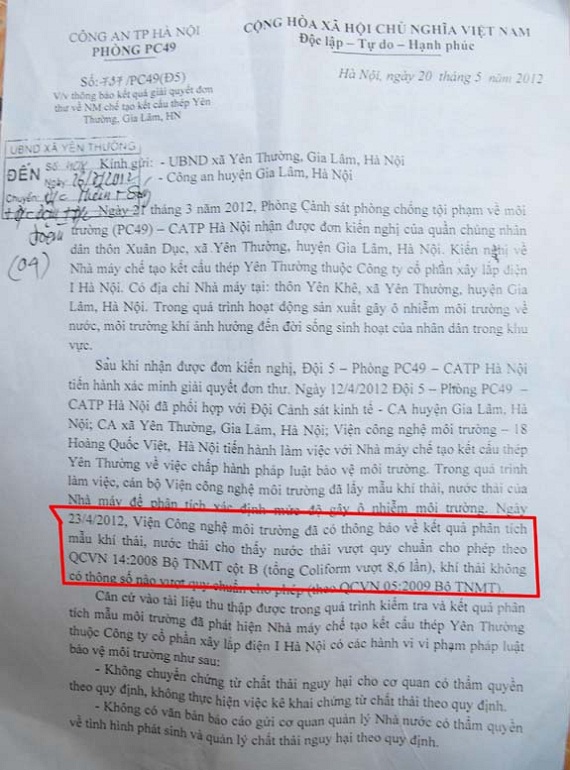 CÔNG AN TP HÀ NỘI
PHÒNG PC49
CỘNG HÒA XÃ HỘI CHỦ NGHĨA VIỆT NAM
Độc lập – Tự do – Hạnh phúc
Số: 737/PC49(Đ5)
V/v thông báo kết quả giải quyết đơn
thư về NM chế tạo kết cấu thép Yên
Thường, Gia Lâm, HN
Hà Nội, ngày 20 tháng 5 năm 2012
UBND XÃ YÊN THƯỜNG
ĐẾN Số:
Ngày:
Chuyển:
(04)
Kính gửi: - UBND xã Yên Thường, Gia Lâm, Hà Nội
- Công an huyện Gia Lâm, Hà Nội
Ngày 21 tháng 3 năm 2012, Phòng Cảnh sát phòng chống tội phạm về môi
trường (PC49) – CATP Hà Nội nhận được đơn kiến nghị của quần chúng nhân
dân thôn Xuân Dục, xã Yên Thường, huyện Gia Lâm, Hà Nội. Kiến nghị về
Nhà máy chế tạo kết cấu thép Yên Thường thuộc Công ty cổ phần xây lắp điện
I Hà Nội. Có địa chỉ Nhà máy tại: thôn Yên Khê, xã Yên Thường, huyện Gia
Lâm, Hà Nội. Trong quá trình hoạt động sản xuất gây ô nhiễm môi trường về
nước, môi trường khí ảnh hưởng đến đời sống sinh hoạt của nhân dân trong khu
vực.
Sau khi nhận được đơn kiến nghị, Đội 5 – Phòng PC49 – CATP Hà Nội
tiến hành xác minh giải quyết đơn thư. Ngày 12/4/2012 Đội 5 – Phòng PC49 –
CATP Hà Nội đã phối hợp với Đội Cảnh sát kinh tế - CA huyện Gia Lâm, Hà
Nội; CA xã Yên Thường, Gia Lâm, Hà Nội; Viện công nghệ môi trường – 18
Hoàng Quốc Việt, Hà Nội tiến hành làm việc với Nhà máy chế tạo kết cấu thép
Yên Thường về việc chấp hành pháp luật bảo vệ môi trường. Trong quá trình
làm việc, cán bộ Viện công nghệ môi trường đã lấy mẫu khí thải, nước thải của
Nhà máy để phân tích xác định mức độ gây ô nhiễm môi trường. Ngày
23/4/2012, Viện Công nghệ môi trường đã có thông báo về kết quả phân tích
mẫu khí thải, nước thải cho thấy nước thải vượt quy chuẩn cho phép theo
QCVN 14:2008 Bộ TNMT cột B (tổng Coliform vượt 8,6 lần), khí thải không
có thông số nào vượt quy chuẩn cho phép (theo QCVN 05:2009 Bộ TNMT).
Căn cứ vào tài liệu thu thập được trong quá trình kiểm tra và kết quả phân
tích mẫu môi trường đã phát hiện Nhà máy chế tạo kết cấu thép Yên Thường
thuộc Công ty cổ phần xây lắp điện I Hà Nội có các hành vi vi phạm pháp luật
bảo vệ môi trường như sau:
- Không chuyển chứng từ chất thải nguy hại cho cơ quan có thẩm quyền
theo quy định, không thực hiện việc kê khai chứng từ chất thải theo quy định.
- Không có văn bản báo cáo gửi cơ quan quản lý Nhà nước có thẩm quyền
về tình hình phát sinh và quản lý chất thải nguy hại theo quy định.